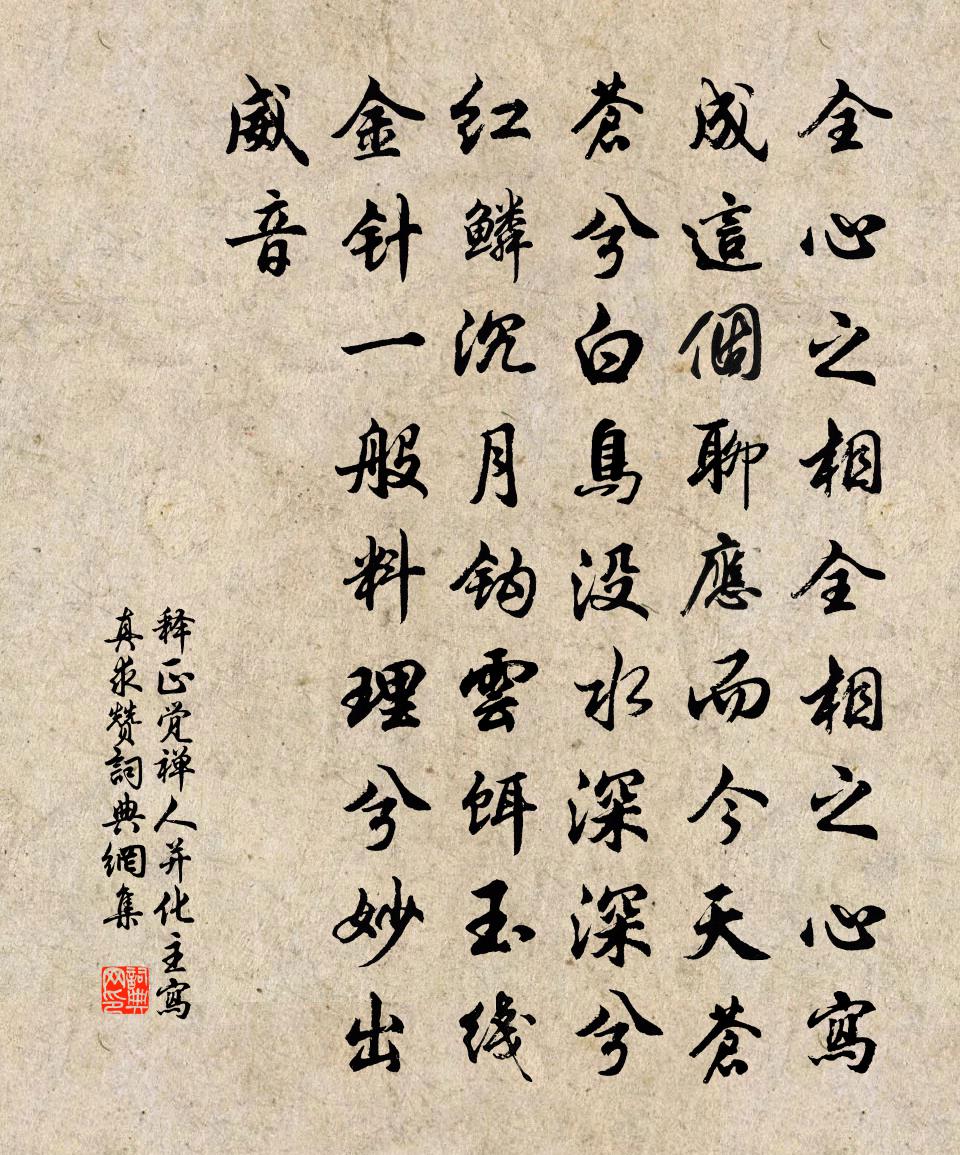 全心之相全相之心寫
成這個聊應而今天蒼
蒼兮白鳥没水深深兮
红鳞沉月钩雲饵玉线
金针一般料理兮妙出
威音
释正觉禅人并化主寫
真求赞詞典網集
詞典网印